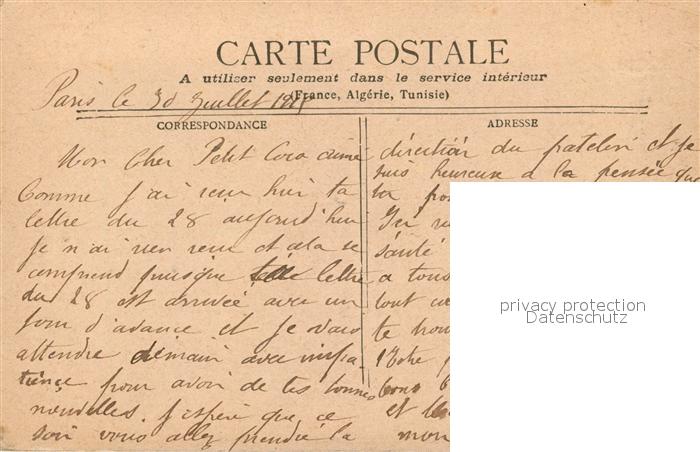 CARTE POSTALE
A utiliser seulement dans le service intérieur
(France, Algérie, Tunisie)
Paris le 30 Juillet 1915
CORRESPONDANCE
Mon Cher Petit Coco aimé
Comme j'ai reçu hier ta
lettre du 28 aujourd'hui
je n'ai rien reçu et cela se
comprend puisque lettre
du 28 est arrivée avec un
jour d'avance et je vais
attendre demain avec impa
tience pour avoir de tes bonnes
nouvelles. J'espère que ce
soir vous allez prendre la
ADRESSE
direction du patelin et je
suis heureux a la pensée que
J'ai
santé
a tous
tout
te
Votre
bons
et
mon
privacy protection
Datenschutz